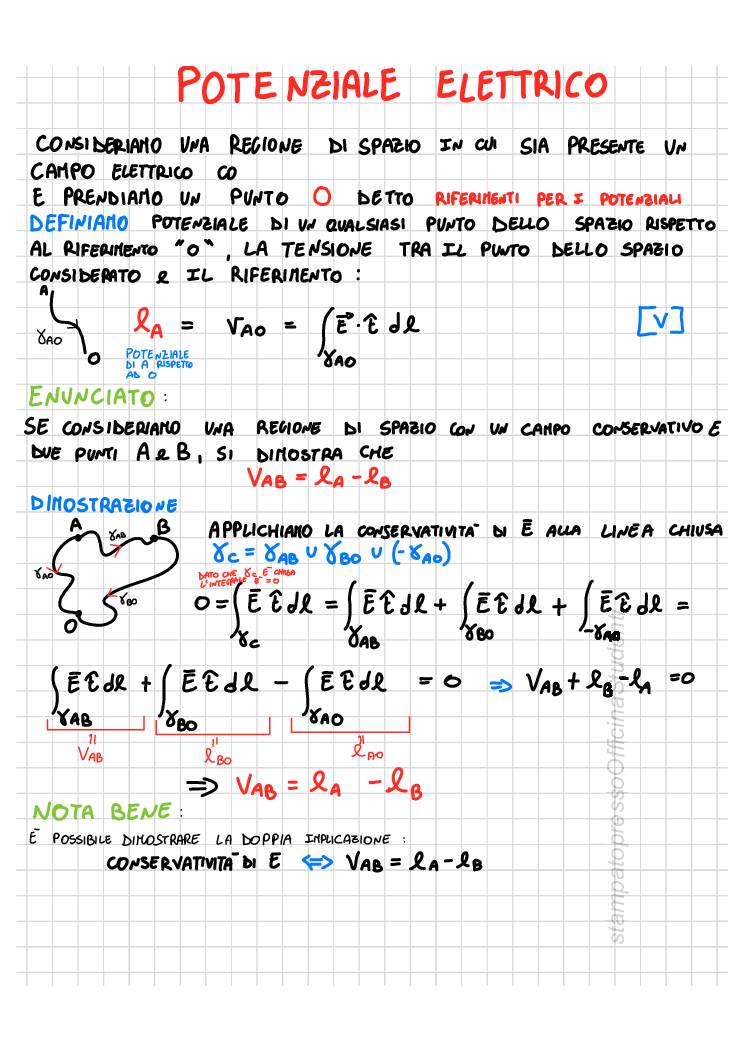 POTENZIALE ELETTRICO
CONSIDERIAMO UNA REGIONE DI SPAZIO IN CUI SIA PRESENTE UN
CAMPO ELETTRICO CO
E PRENDIAMO UN PUNTO O DETTO RIFERIMENTI PER I POTENZIALI
DEFINIAMO POTENZIALE DI UN QUALSIASI PUNTO DELLO SPAZIO RISPETTO
AL RIFERIMENTO "O", LA TENSIONE TRA IL PUNTO DELLO SPAZIO
CONSIDERATO e IL RIFERIMENTO :
A γAO O
ℓA = VAO = ∫γAO E⃗ · t̂ dℓ [V]
POTENZIALE
DI A RISPETTO
AD O
ENUNCIATO :
SE CONSIDERIAMO UNA REGIONE DI SPAZIO CON UN CAMPO CONSERVATIVO E
DUE PUNTI A e B, SI DIMOSTRA CHE
VAB = ℓA - ℓB
DIMOSTRAZIONE
A γAB B γAO γBO O
APPLICHIAMO LA CONSERVATIVITA' DI Ē ALLA LINEA CHIUSA
γC = γAB ∪ γBO ∪ (-γAO)
DATO CHE γC E' CHIUSA
L'INTEGRALE E' = 0
0 = ∫γC Ē t̂ dℓ = ∫γAB Ē t̂ dℓ + ∫γBO Ē t̂ dℓ + ∫-γAO Ē t̂ dℓ =
∫γAB Ē t̂ dℓ + ∫γBO Ē t̂ dℓ - ∫γAO Ē t̂ dℓ = 0 ⇒ VAB + ℓB - ℓA = 0
VAB ℓBO ℓAO
⇒ VAB = ℓA - ℓB
NOTA BENE :
E' POSSIBILE DIMOSTRARE LA DOPPIA IMPLICAZIONE :
CONSERVATIVITA' DI E ⇔ VAB = ℓA - ℓB
stampatopressoOfficinaStudenti